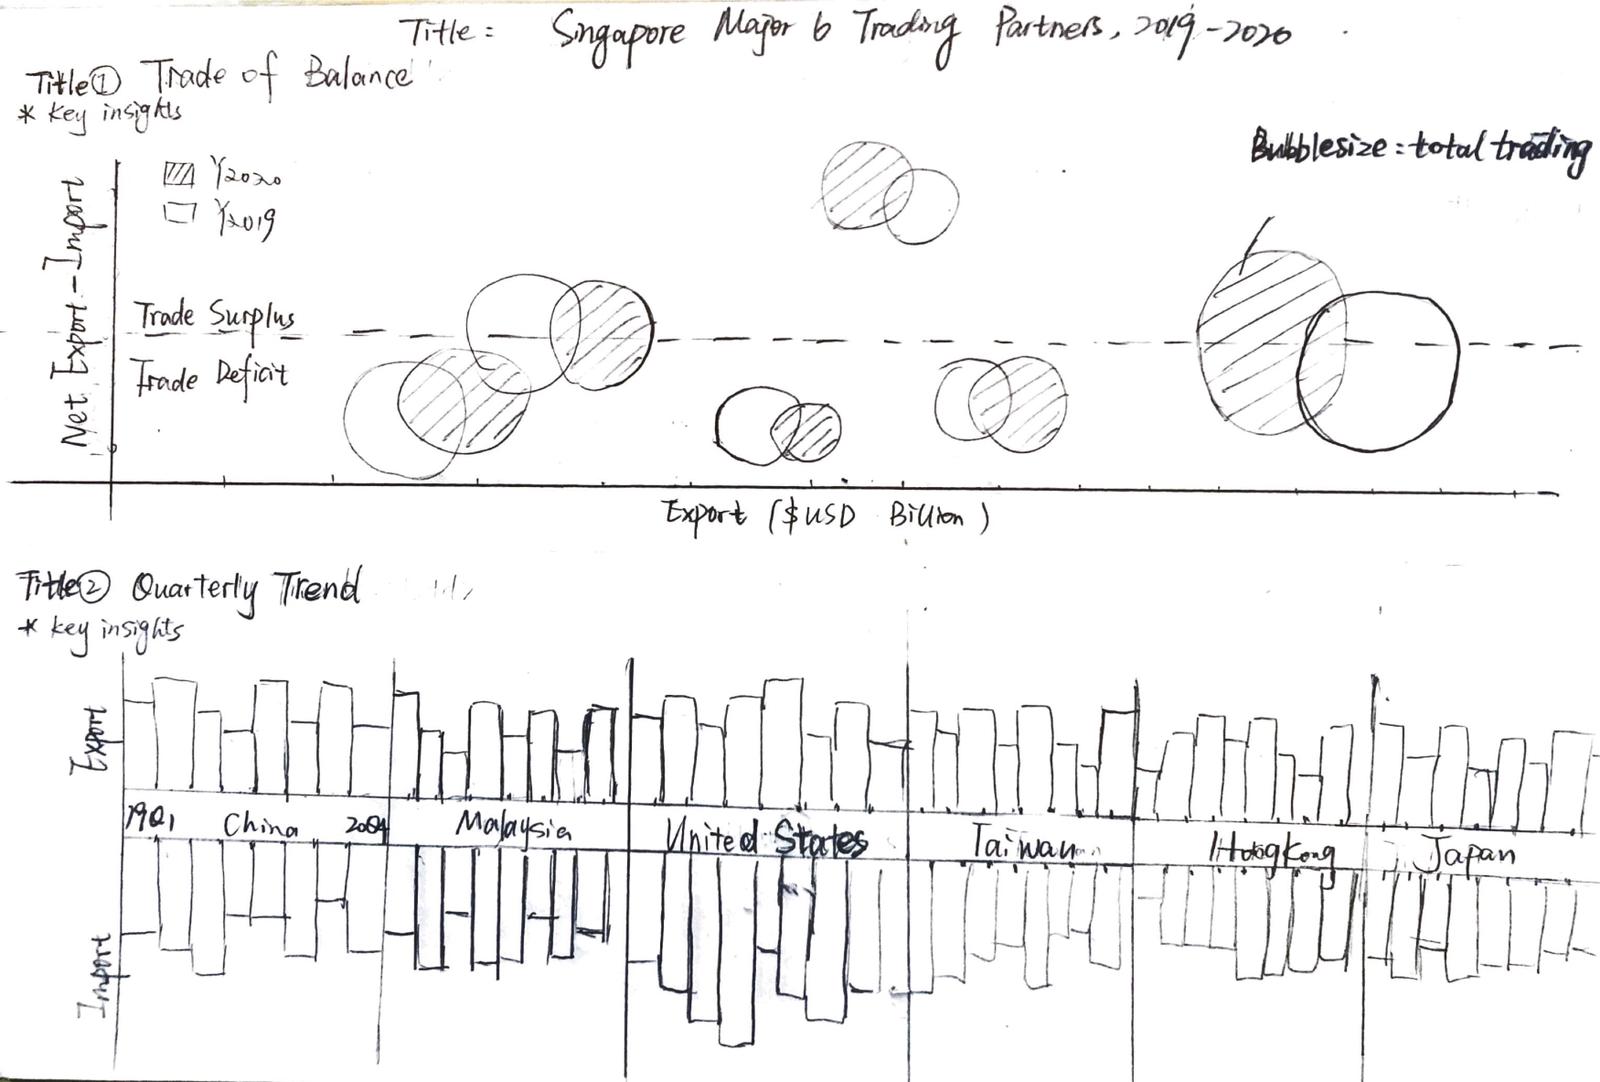 Title : Singapore Major 6 Trading Partners, 2019-2020
Title① Trade of Balance
* key insights
Bubblesize : total trading
Y2020
Y2019
Net Export-Import
Trade Surplus
Trade Deficit
Export ($USD Billion)
Title② Quarterly Trend
* key insights
Export
19Q1 China 20Q4 Malaysia United States Taiwan HongKong Japan
Import